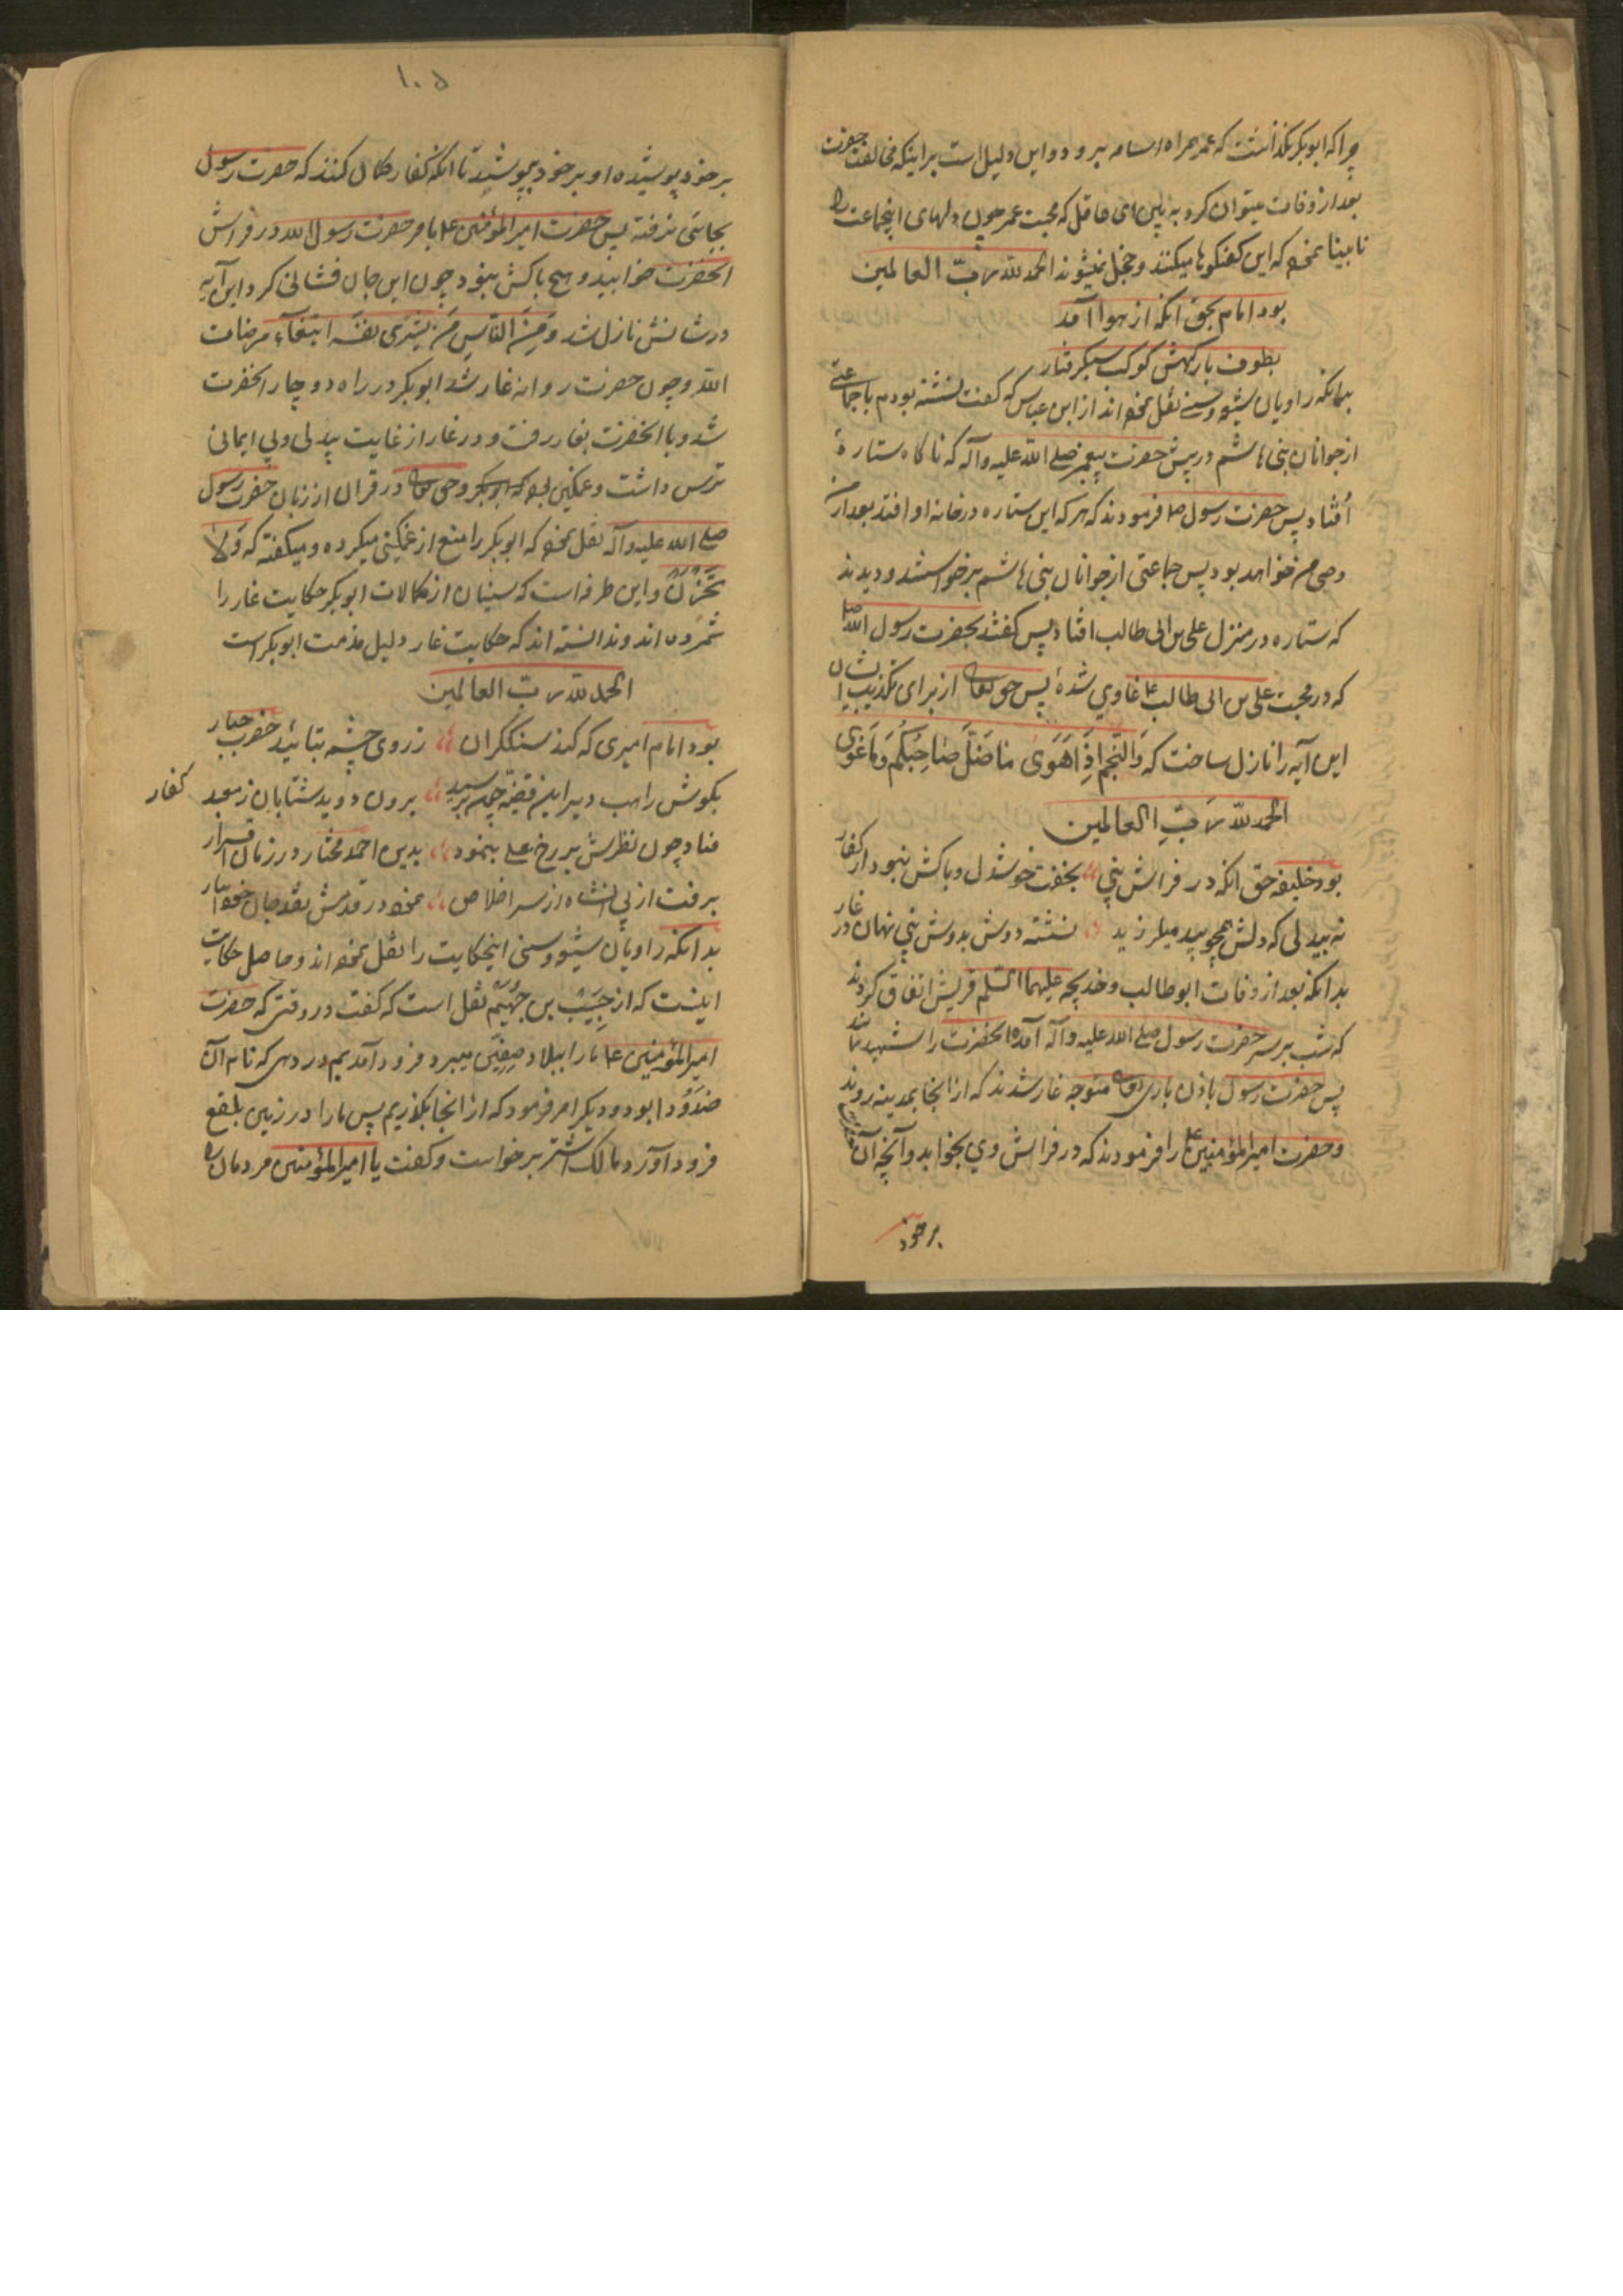 چرا که ابوبکر نگذاشت که عمر همراه اسامه برود و این دلیل است بر اینکه مخالفت حضرت
بعد از وفات میتوان کرد به بین ای عاقل که محبت عمر چون دلهای اینجماعت را
نابینا نموده که این گفتگوها میکنند و خجل نمیشوند الحمد لله رب العالمین
بود امام بحق انکه از هوا آمد
بطوف بارگهش کوکب سبکرفتار
بدانکه راویان شیعه و سنی نقل نموده اند از ابن عباس که گفت نشسته بودم با جماعتی
از جوانان بنی هاشم در پیش حضرت پیغمبر صلی الله علیه وآله که ناگاه ستارهٔ
اُفتاد پس حضرت رسول ص فرمودند که هر که این ستاره در خانه او افتد بعد از من
وصی من خواهد بود پس جماعتی از جوانان بنی هاشم برخواستند و دیدند
که ستاره در منزل علی بن ابی طالب افتاد پس گفتند بحضرت رسول الله ص
که در محبت علی بن ابی طالب ع غاوی شدهٔ پس حق تعالی از برای تکذیب ایشان
این آیه را نازل ساخت که وَالنَّجمِ اِذَا هَوَىٰ مَا ضَلَّ صَاحِبُکُم وَمَا غَوَی
الحمد لله رَبِّ العالمین
بود خلیفه حق انکه در فراش نبی ،، بخفت خوشدل و باکش نبود از کفار
نه بیدلی که دلش همچو بید میلرزید ،، نشسته دوش بدوش نبی نهان در غار
بدانکه بعد از وفات ابوطالب و خدیجه علیهما السلم قریش اتفاق کردند
که شب بر سر حضرت رسول صلی الله علیه وآله آمده انحضرت را شهید نمایند
پس حضرت رسول باذن باری تعالی متوجه غار شدند که از انجا بمدینه روند
و حضرت امیرالمؤمنین ع را فرمودند که در فراش وی بخوابد و آنچه آن
بر خود
۱۰۵
بر خود پوشیده او بر خود بپوشید تا انکه کفار گمان کنند که حضرت رسول
بجائی نرفته پس حضرت امیرالمؤمنین ع بامر حضرت رسول الله در فراش
انحضرت خوابید و هیچ باکش نبود چون این جان فشانی کرد این آیه
در شانش نازل شد وَمِنَ النّاسِ مَن یَشری نفسَه ابتغآء مرضات
الله و چون حضرت روانه غار شد ابوبکر در راه دوچار انحضرت
شد و با انحضرت بغار رفت و در غار از غایت بیدلی و بی ایمانی
ترس داشت و غمگین بود که ابوبکر و حق تعالی در قران از زبان حضرت رسول
صلی الله علیه وآله نقل نموده که ابوبکر را منع از غمگینی میکرده و میگفته که وَلا
تَحْزَنْ و این طرفه است که سنیان از کمالات ابوبکر حکایت غار را
شمرده اند و ندانسته اند که حکایت غار دلیل مذمت ابوبکر است
الحمد لله رب العالمین
بود امام امیری که کند سنگگران ،، ز روی چشمه بتائید حضرت جبار
بگوش راهب دیر این قضیه چون برسید ،، برون دوید شتابان ز معبد کفار
فتاد چون نظرش بر رخ علی بنمود ،، بدین احمد مختار در زمان اقرار
برفت از پی انشاه از سر اخلاص ،، نمود در قدمش نقد جان خود ایثار
بدانکه راویان شیعه و سنی اینحکایت را نقل نموده اند و حاصل حکایت
اینست که از حبیب بن جُهَیم نقل است که گفت در وقتی که حضرت
امیرالمؤمنین ع ما را ببلاد صفین میبرد فرود آمدیم در دهی که نام آن
صَندَودا بود و دیگر امر فرمود که از انجا بگذریم پس ما را در زمین بلقع
فرود آورد مالک اشتر برخواست و گفت یا امیرالمؤمنین مردمان را